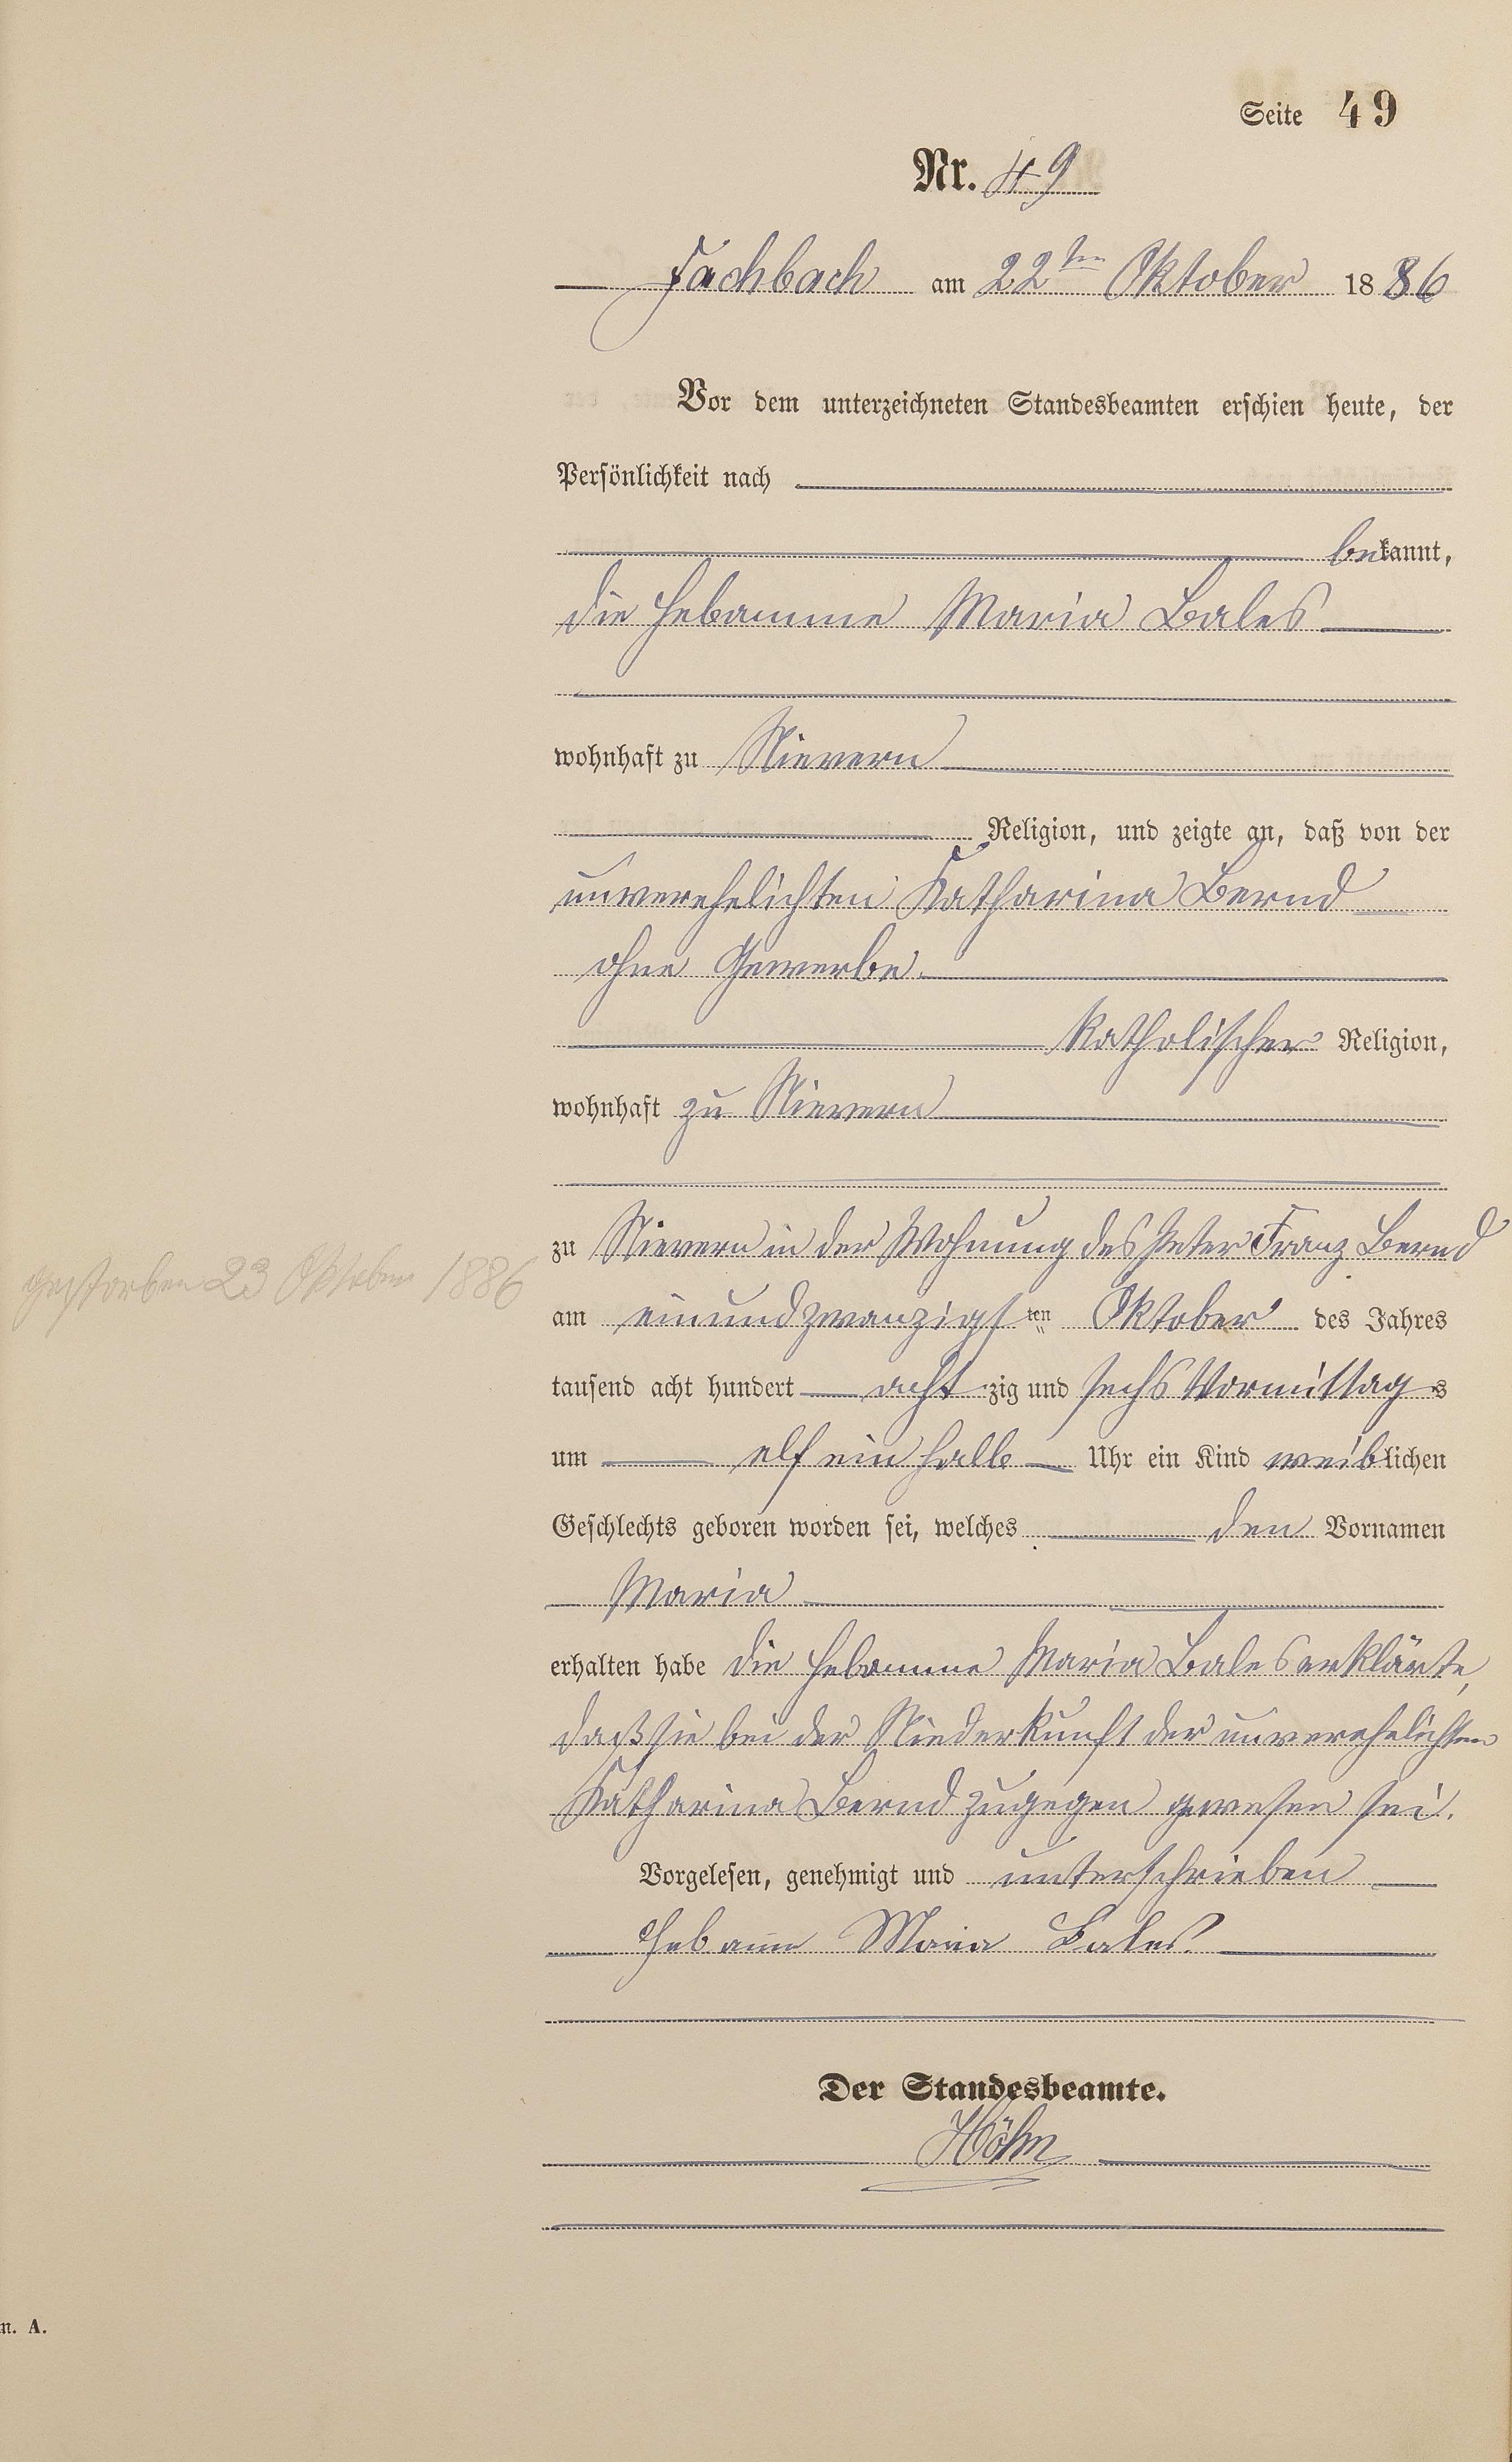 Seite 49
Nr. 49
Fachbach am 22ten Oktober 1886
Vor dem unterzeichneten Standesbeamten erschien heute, der
Persönlichkeit nach
bekannt,
die Hebamme Maria Bales
wohnhaft zu Nievern
Religion, und zeigte an, daß von der
unverehelichten Katharina Bernd
ohne Gewerbe.
katholischer Religion,
wohnhaft zu Nievern
zu Nievern in der Wohnung des Peter Franz Bernd
gestorben 23 Oktober 1886
am einundzwanzigsten Oktober des Jahres
tausend acht hundert achtzig und sechs Vormittags
um elf ein halb Uhr ein Kind weiblichen
Geschlechts geboren worden sei, welches den Vornamen
Maria
erhalten habe die Hebamme Maria Bales erklärte,
daß sie bei der Niederkunft der unverehelichten
Katharina Bernd zugegen gewesen sei.
Vorgelesen, genehmigt und unterschrieben
Hebamm Maria Bales
Der Standesbeamte.
Höhn
n. A.